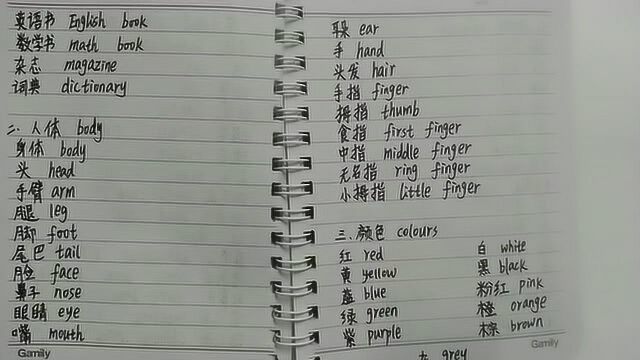 英语书 English book
数学书 math book
杂志 magazine
词典 dictionary
二. 人体 body
身体 body
头 head
手臂 arm
腿 leg
脚 foot
尾巴 tail
脸 face
鼻子 nose
眼睛 eye
嘴 mouth
Gamily
耳朵 ear
手 hand
头发 hair
手指 finger
拇指 thumb
食指 first finger
中指 middle finger
无名指 ring finger
小拇指 little finger
三. 颜色 colours
红 red 白 white
黄 yellow 黑 black
蓝 blue 粉红 pink
绿 green 橙 orange
紫 purple 棕 brown
grey
Gamily